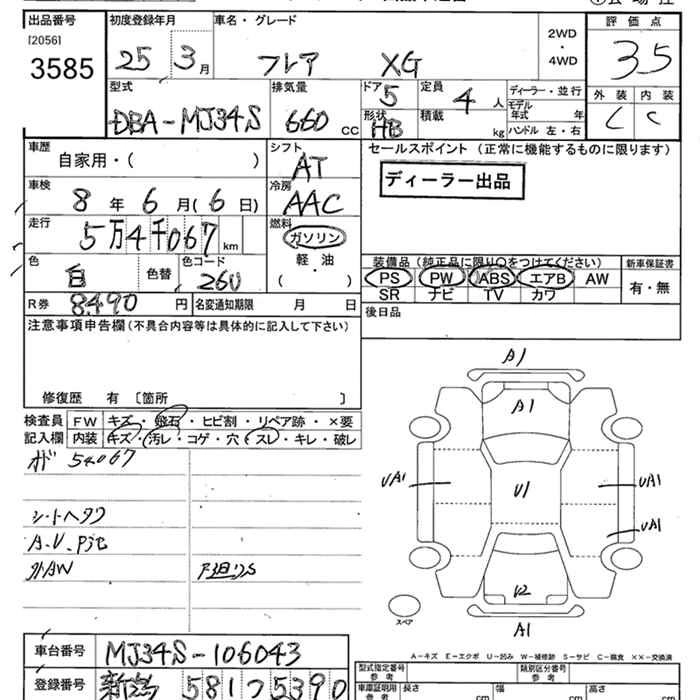 出品番号
[2056]
3585
初度登録年月
25 3月
車名・グレード
フレア XG
2WD
・
4WD
評価点
3.5
外装 内装
C C
型式
DBA-MJ34S
排気量
660 CC
ドア 5
形状 HB
定員 4人
積載 kg
ディーラー・並行
モデル年式 年
ハンドル 左・右
車歴
自家用・( )
シフト
AT
セールスポイント (正常に機能するものに限ります)
ディーラー出品
車検
8年6月(6日)
冷房
AAC
走行
5万4千067 km
燃料
ガソリン
軽・油
( )
色
白
色替
色コード
26U
装備品(純正品に限り○をつけてください)
PS PW ABS エアB AW
SR ナビ TV カワ
新車保証書
有・無
R券 8490円
名変通知期限 月 日
後日品
注意事項申告欄(不具合内容等は具体的に記入して下さい)
修復歴 有 〔箇所 〕
検査員記入欄
FW キズ・飛石・ヒビ割・リペア跡・×要
内装 キズ・汚レ・コゲ・穴・スレ・キレ・破レ
54067
シートヘタリ
外AW
A1
A1
UA1 U1 UA1
UA1
U2
A1
スペア
A-キズ E-エクボ U-凹み W-補修跡 S-サビ C-腐食 ××-交換済
車台番号
MJ34S-106043
登録番号
新潟 581 つ 5390
型式指定番号
参考
類別区分番号
参考
車庫証明用
参考
長さ cm
幅 cm
高さ cm